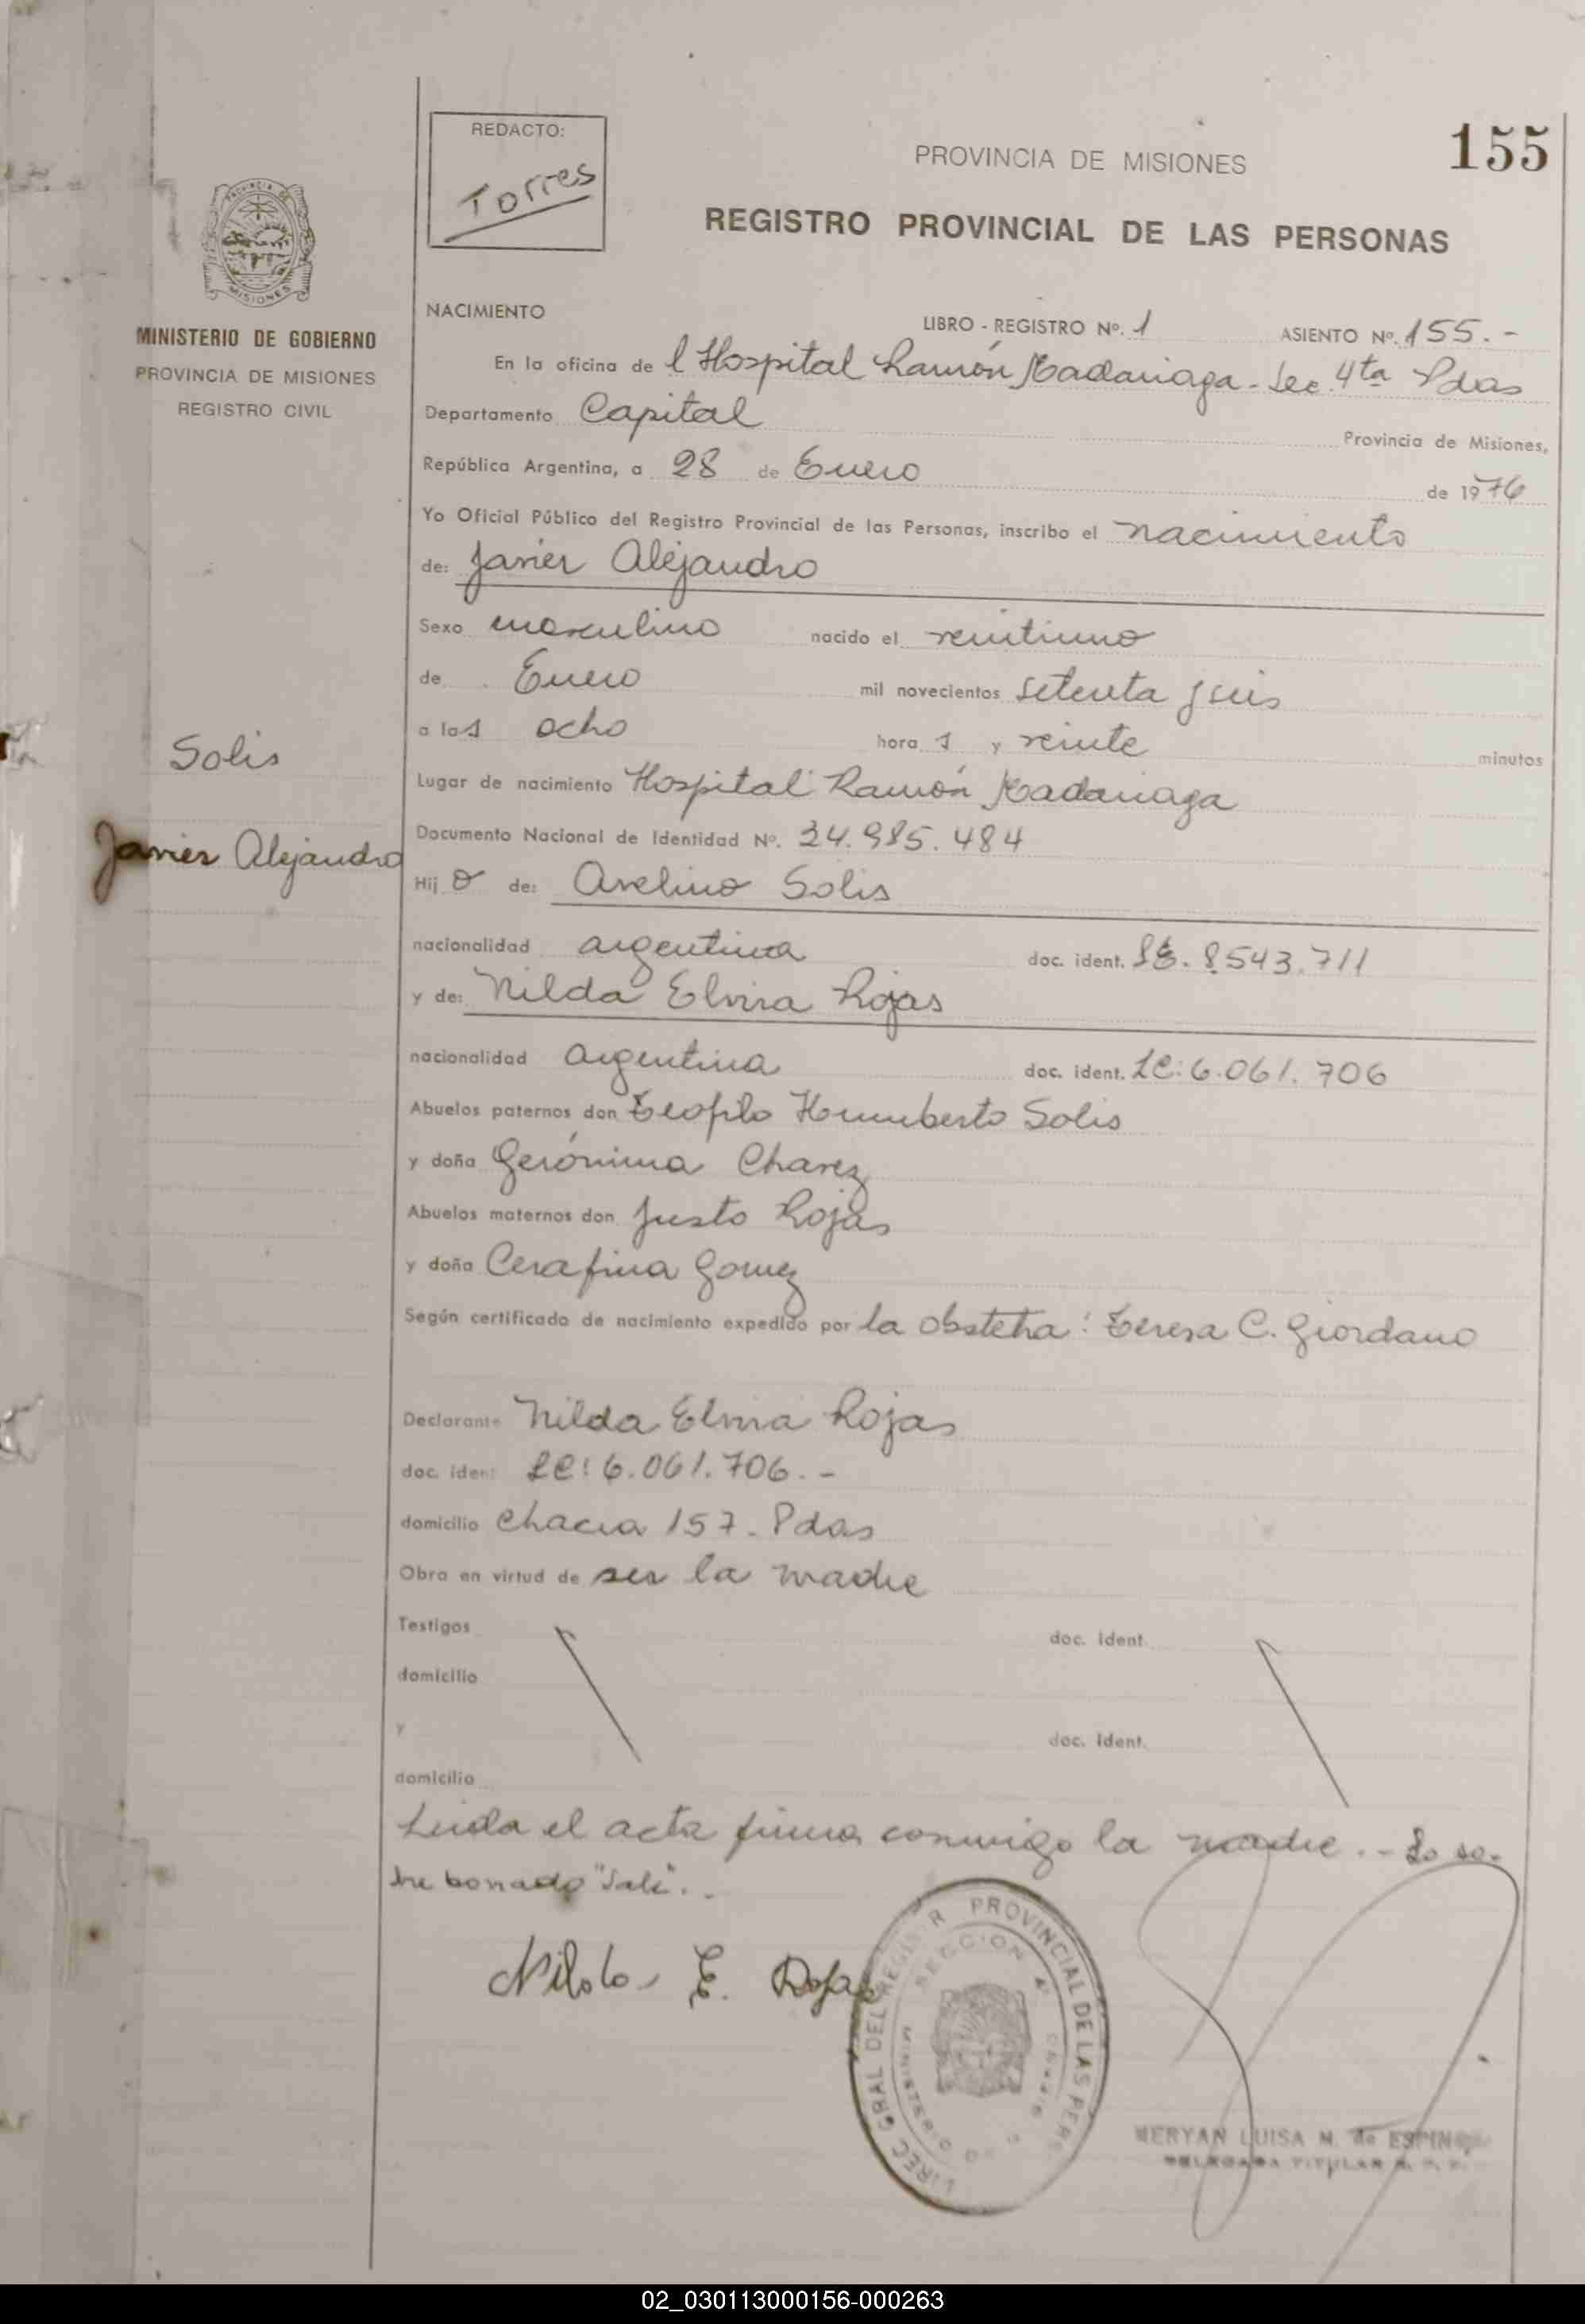 REDACTO:
Torres
PROVINCIA DE MISIONES
155
REGISTRO PROVINCIAL DE LAS PERSONAS
MINISTERIO DE GOBIERNO
PROVINCIA DE MISIONES
REGISTRO CIVIL
NACIMIENTO
LIBRO - REGISTRO Nº. 1 ASIENTO Nº. 155.-
En la oficina de l Hospital Ramón Madariaga - Sec. 4ta Pdas
Departamento Capital Provincia de Misiones,
República Argentina, a 28 de Enero de 1976
Yo Oficial Público del Registro Provincial de las Personas, inscribo el nacimiento
de: Javier Alejandro
Sexo masculino nacido el veintiuno
de Enero mil novecientos setenta y seis
a las ocho hora s y veinte minutos
Solis
Javier Alejandro
Lugar de nacimiento Hospital Ramón Madariaga
Documento Nacional de Identidad Nº. 24.985.484
Hij o de: Avelino Solis
nacionalidad argentina doc. ident. LE. 8.543.711
y de: Nilda Elvira Rojas
nacionalidad argentina doc. ident. LC: 6.061.706
Abuelos paternos don Teofilo Humberto Solis
y doña Gerónima Chavez
Abuelos maternos don Justo Rojas
y doña Cerafina Gomez
Según certificado de nacimiento expedido por la obstetra: Teresa C. Giordano
Declarante Nilda Elvira Rojas
doc. ident LC: 6.061.706.-
domicilio Chacra 157 - Pdas
Obra en virtud de ser la madre
Testigos doc. ident.
domicilio
y doc. ident.
domicilio
Leida el acta firma conmigo la madre.- Lo so-
bre borrado "Vale".-
Nilda E. Rojas
DIREC GRAL DEL REGISTR PROVINCIAL DE LAS PERS
SECCION 4ª
MINISTERIO
MERYAN LUISA M. de ESPINO
DELEGADA TITULAR R. P. P.
02_030113000156-000263